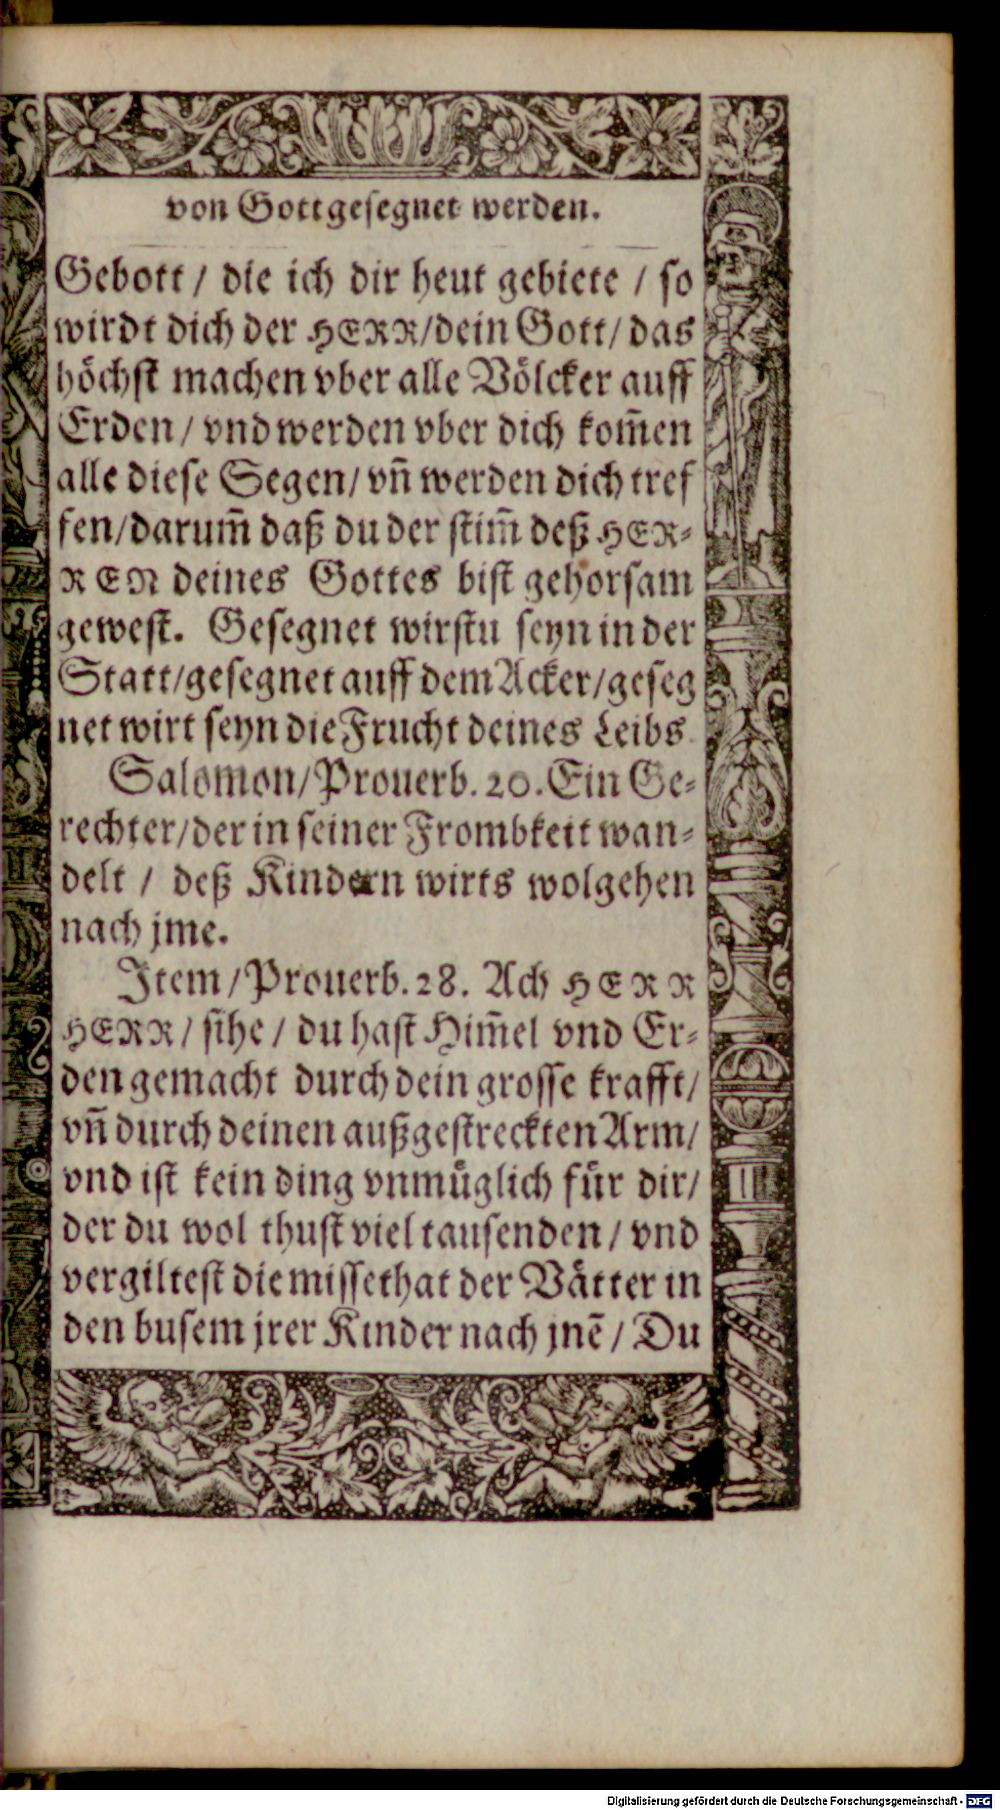 von Gott gesegnet werden.
Gebott / die ich dir heut gebiete / so
wirdt dich der HERR/dein Gott/ das
höchst machen vber alle Völcker auff
Erden / vnd werden vber dich kom̃en
alle diese Segen/ vñ werden dich tref
fen/darum̃ daß du der stim̃ deß HER-
REN deines Gottes bist gehorsam
gewest. Gesegnet wirstu seyn in der
Statt/gesegnet auff dem Acker/geseg
net wirt seyn die Frucht deines Leibs.
Salomon/Prouerb. 20. Ein Ge-
rechter/der in seiner Frombkeit wan-
delt / deß Kindern wirts wolgehen
nach jme.
Item/Prouerb. 28. Ach HERR
HERR/ sihe / du hast Him̃el vnd Er-
den gemacht durch dein grosse krafft/
vñ durch deinen außgestreckten Arm/
vnd ist kein ding vnmüglich für dir/
der du wol thust viel tausenden / vnd
vergiltest die missethat der Vätter in
den busem jrer Kinder nach jnẽ / Du
Digitalisierung gefördert durch die Deutsche Forschungsgemeinschaft - DFG